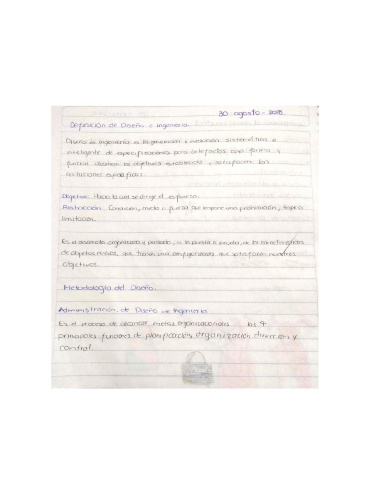 30 agosto - 2018
Definición de Diseño e Ingeniería.
Diseño de Ingeniería es la generación y evaluación sistemática e
inteligente de especificaciones para artefactos cuya forma y
función alcanzan los objetivos establecidos y satisfacen las
restricciones especificadas.
Objetivo: Hacia la cual se dirige el esfuerzo.
Restricción: Condición, o fuerza que impone una prohibición,
limitación.
Es el desarrollo organizado y pensado, o la puesta a prueba, de las características
de objetos nuevos, que tienen una configuración que satisfacen nuestros
objetivos.
Metodología del Diseño.
Administración de Diseño de Ingeniería
Es el proceso de alcanzar metas organizacionales las 4
principales funciones de planificación, organización, dirección y
control.